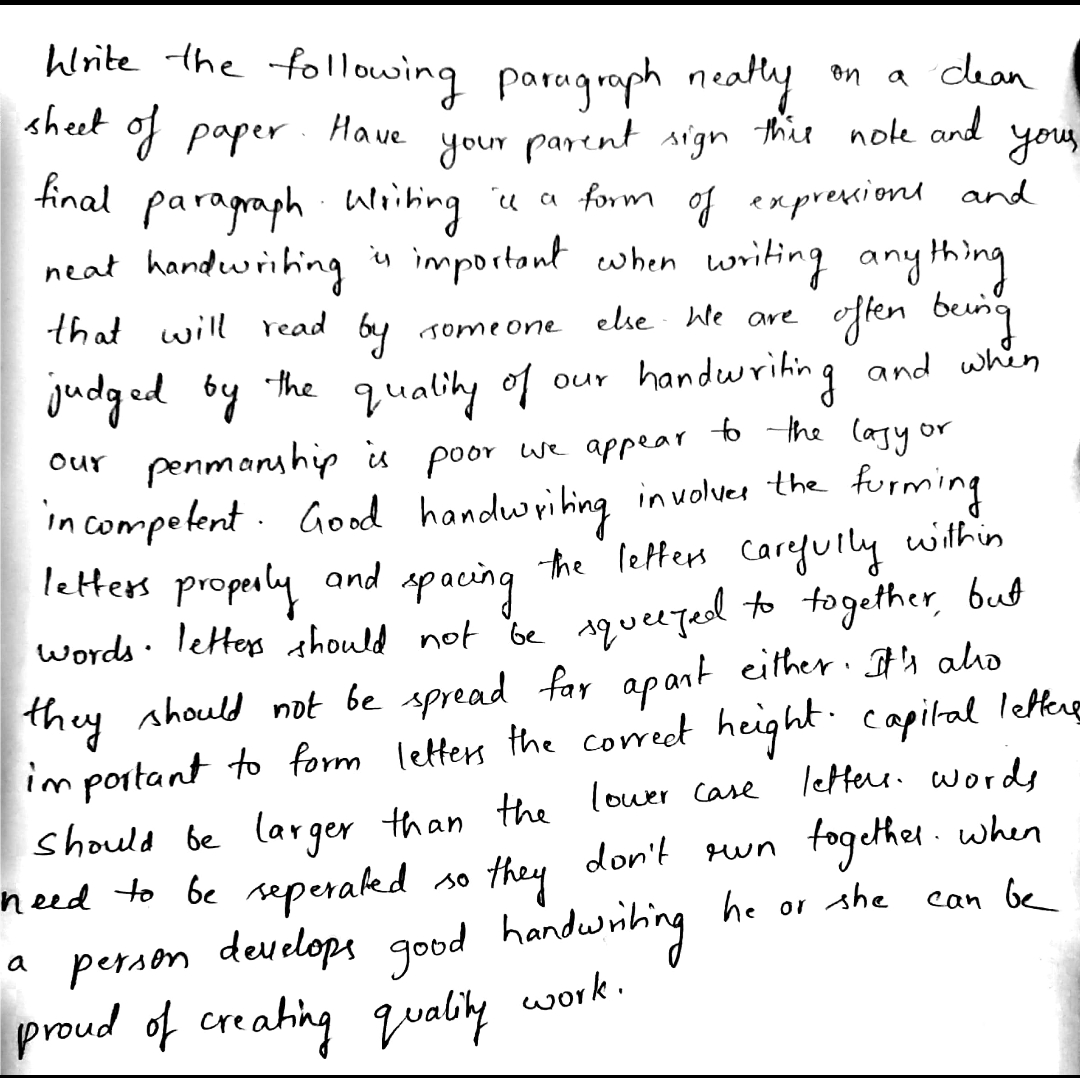 Write the following paragraph neatly on a clean
sheet of paper. Have your parent sign this note and your
final paragraph. Writing is a form of expressions and
neat handwriting is important when writing anything
that will read by someone else. We are often being
judged by the quality of our handwriting and when
our penmanship is poor we appear to the lazy or
incompetent. Good handwriting involves the furming
letters properly and spacing the letters carefully within
words. letters should not be squeezed to together, but
they should not be spread far apart either. It's also
important to form letters the correct height. capital letters
should be larger than the lower case letters. words
need to be seperated so they don't run together. when
a person develops good handwriting he or she can be
proud of creating quality work.